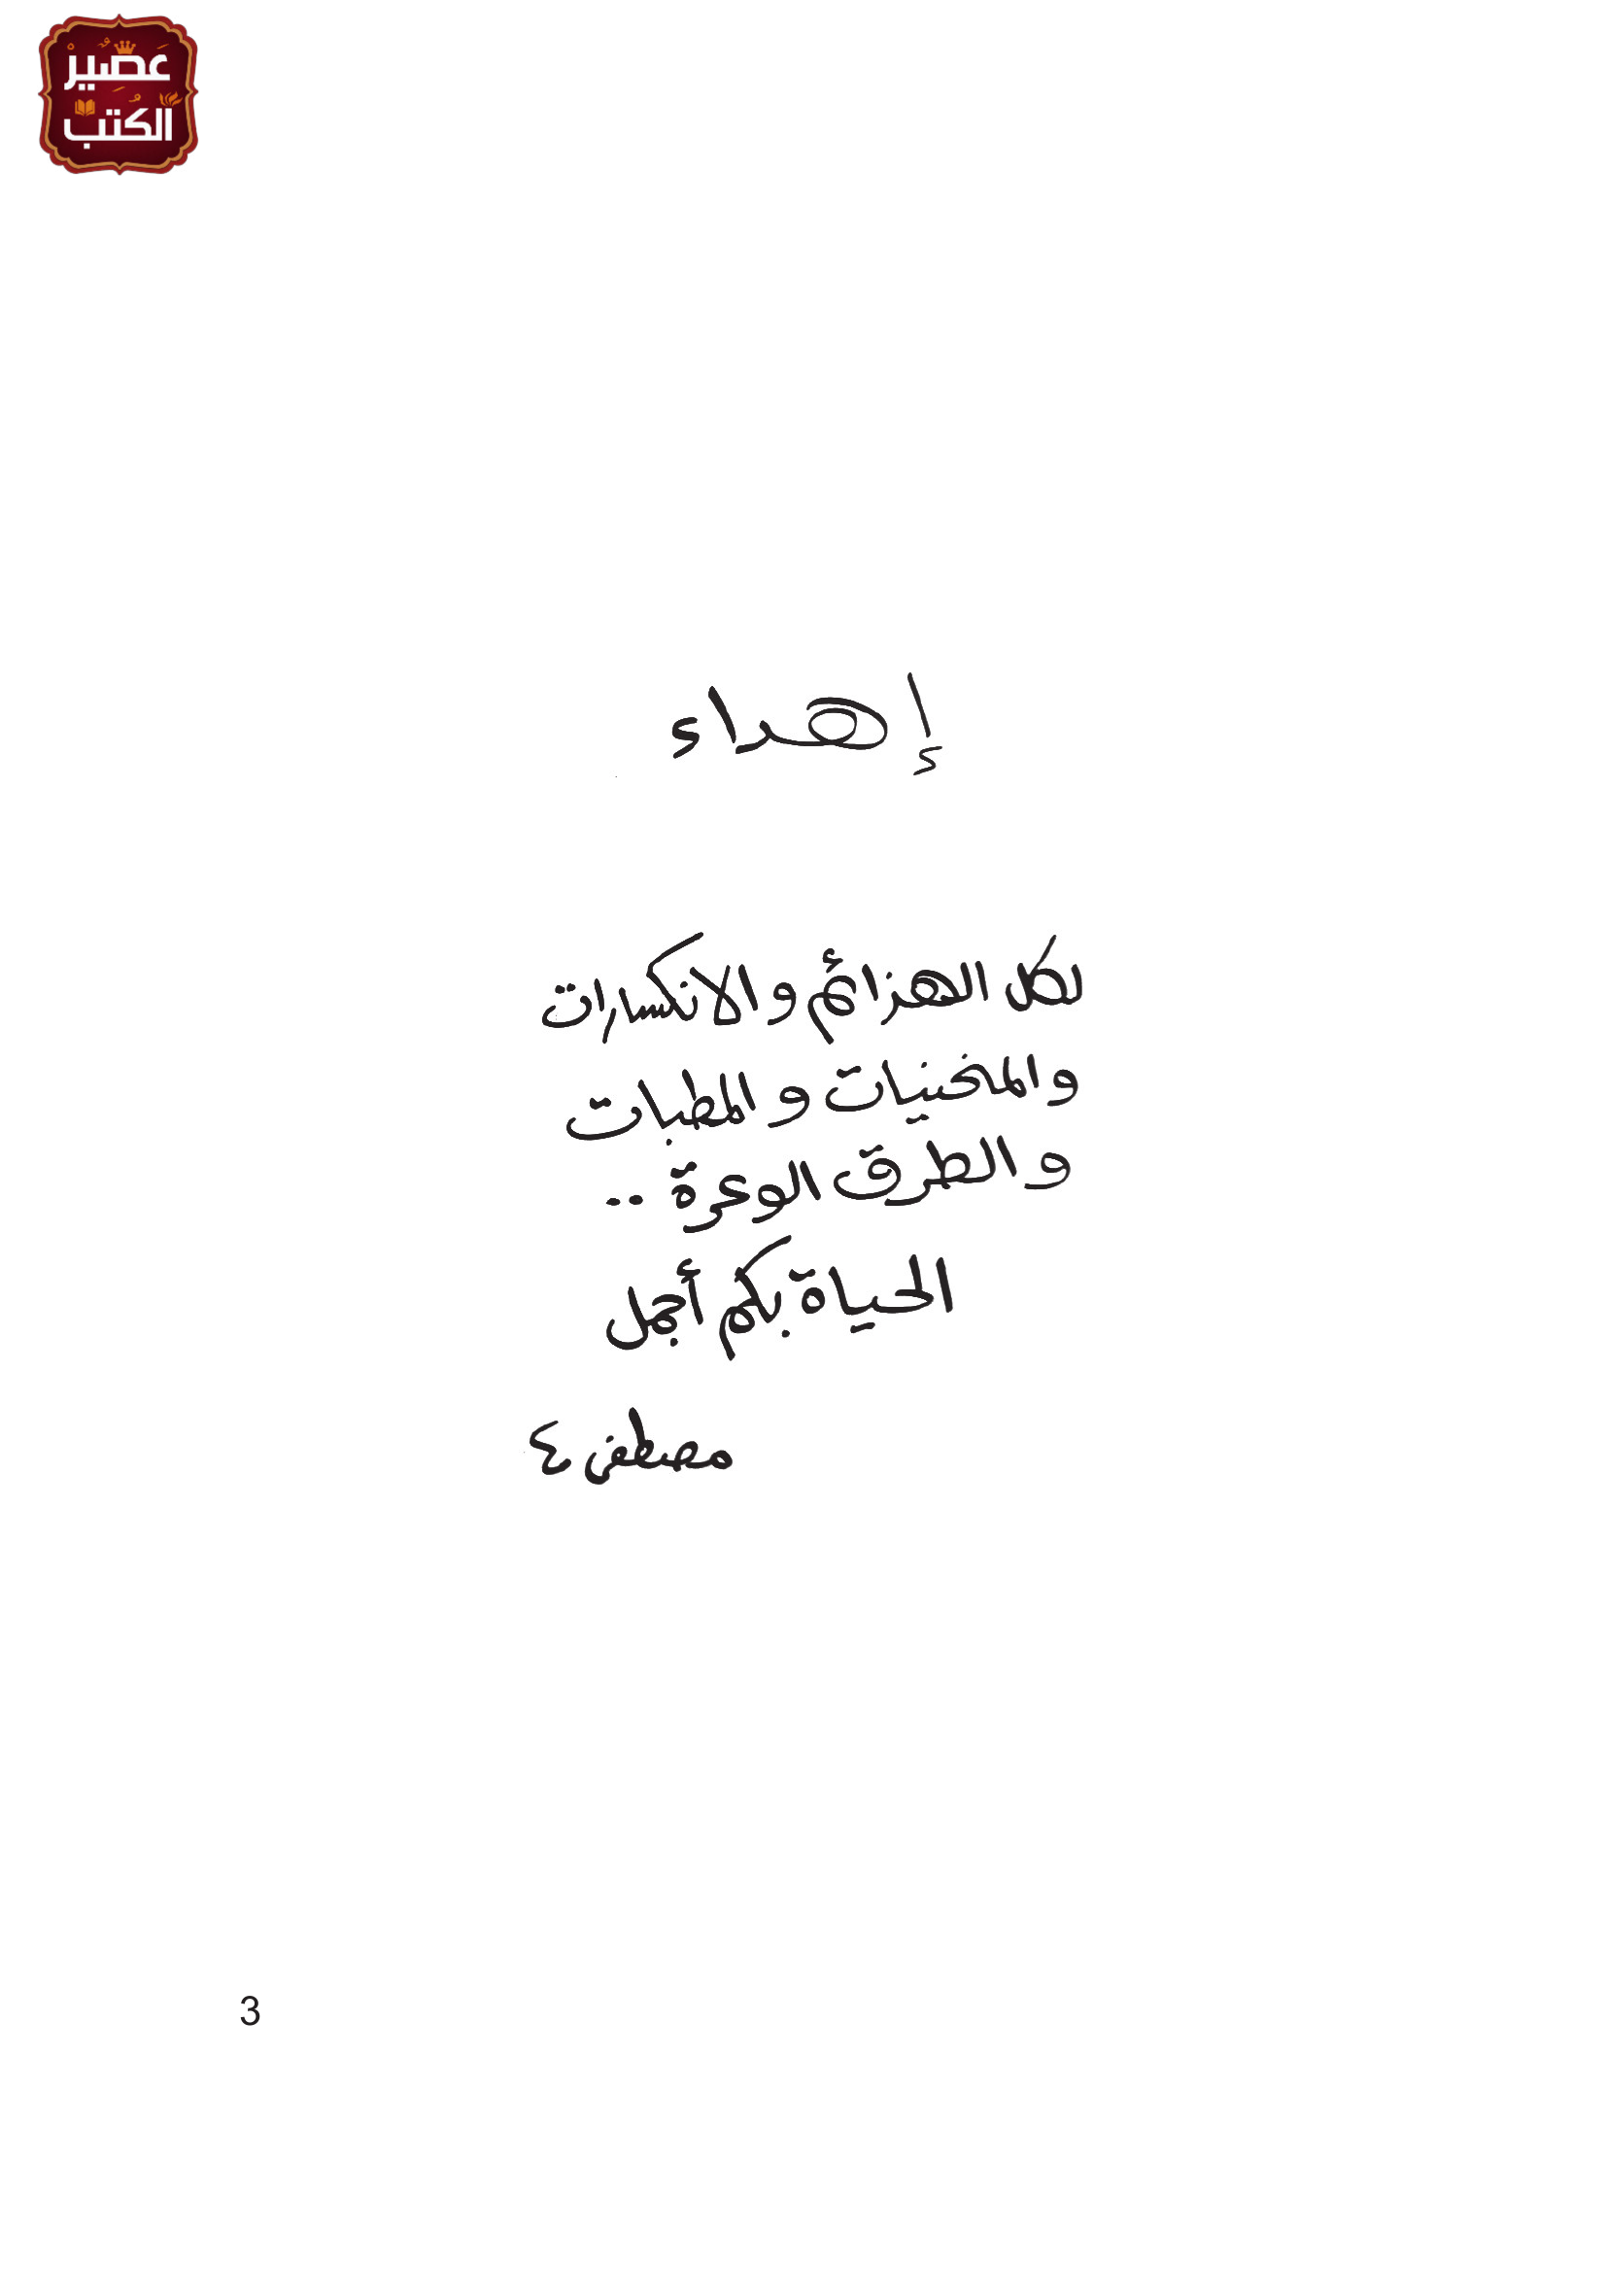 عَصِيرُ
الكُتب
إهداء
لكل الهزائم والانكسارات
والمنحنيات والمطبات
والطرق الوعرة ..
الحياة بكم أجمل
مصطفى
3